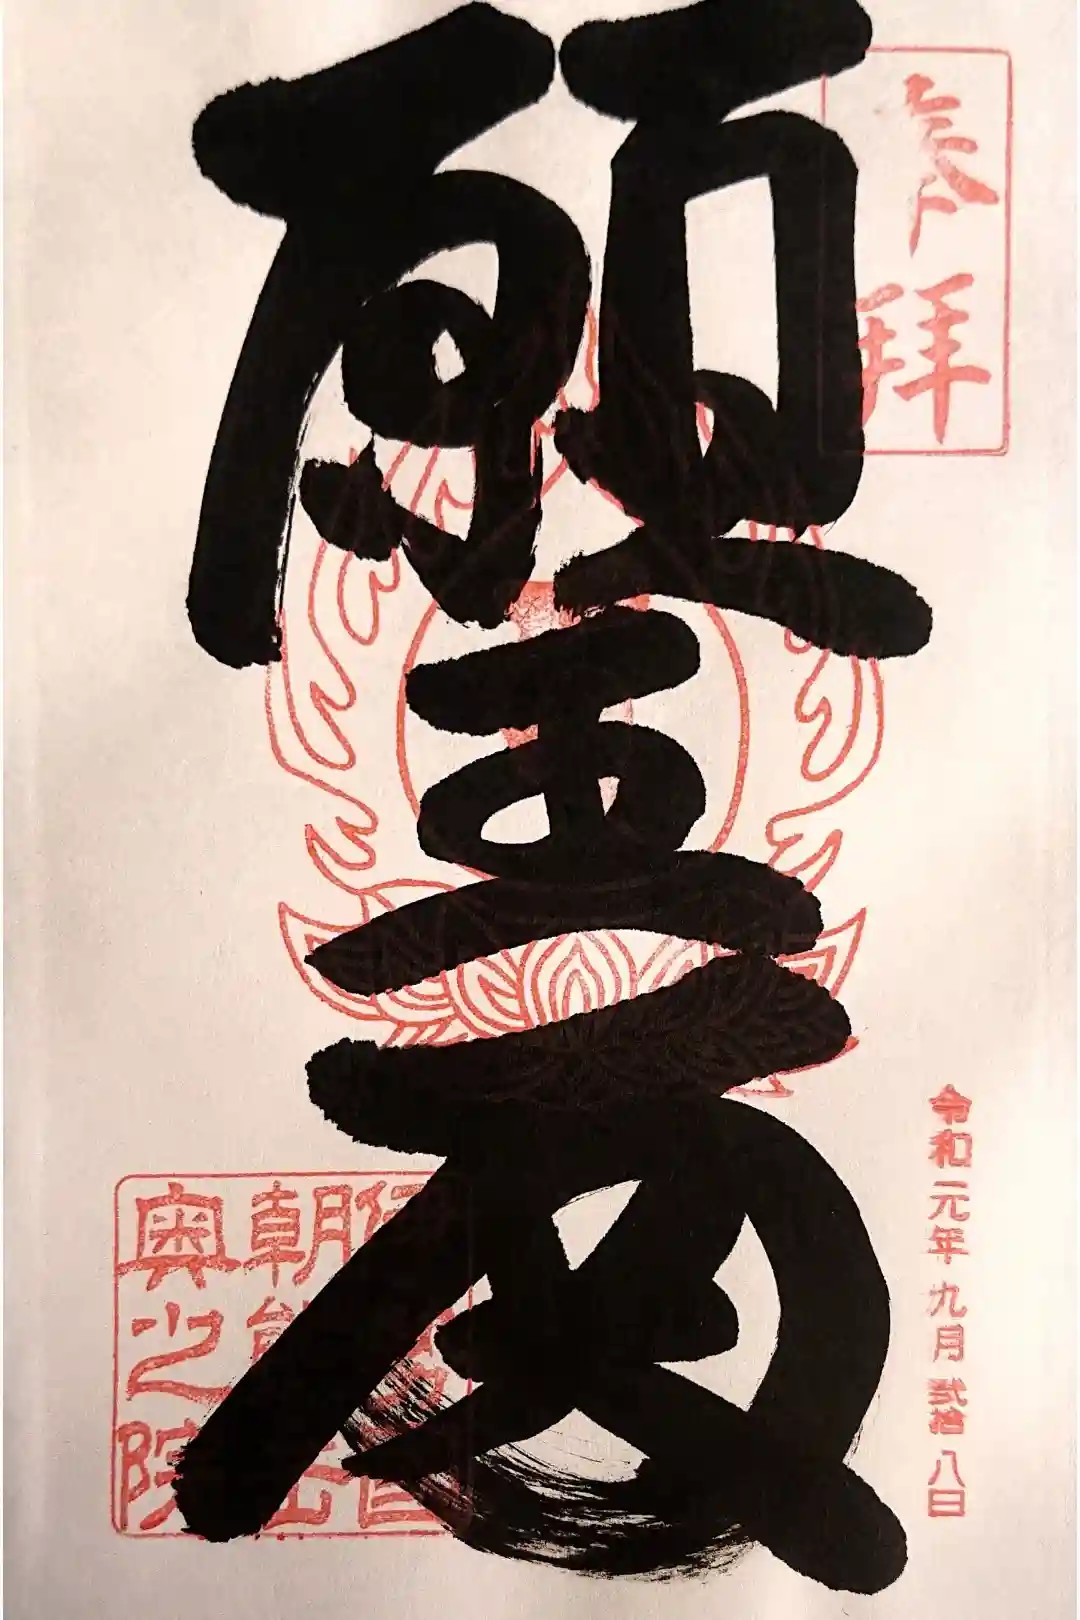 参拝
願王
令和元年九月弐拾八日
朝熊岳
奥之院